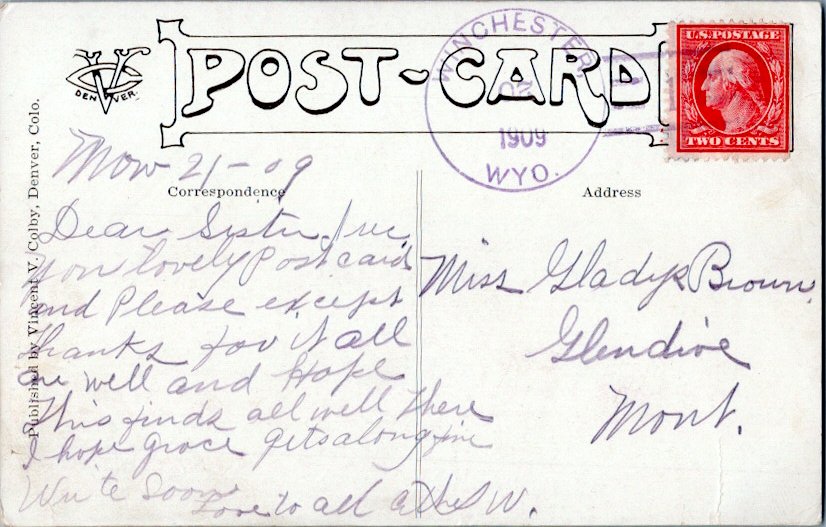 POST-CARD
VC
DENVER.
WINCHESTER
1909
WYO.
U.S. POSTAGE
TWO CENTS
Published by Vincent V. Colby, Denver, Colo.
Nov 21-09
Correspondence
Dear Sister, rec
your lovely Post cards
and Please except
thanks for it all
are well and Hope
This finds all well There
I hope grace gets along fine
Write Soon
Love to all
Address
Miss Gladys Brown,
Glendive
Mont.